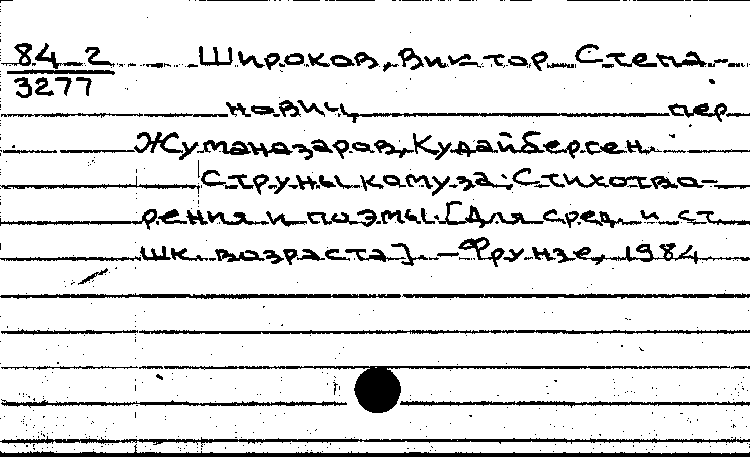 84-2
3277
Широков, Виктор Степа-
нович, пер
Жуманазаров, Кудайберген.
Струны комуза: Стихотво-
рения и поэмы. [Для сред. и ст.
шк. возраста]. - Фрунзе, 1984